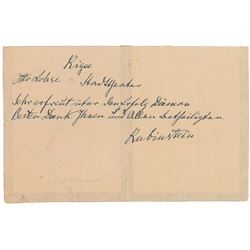 Riga
Otto Lohse Stadttheater
Sehr erfreut über den Erfolg Dämon
Besten Dank Ihnen und Allen Betheiligten
Rubinstein